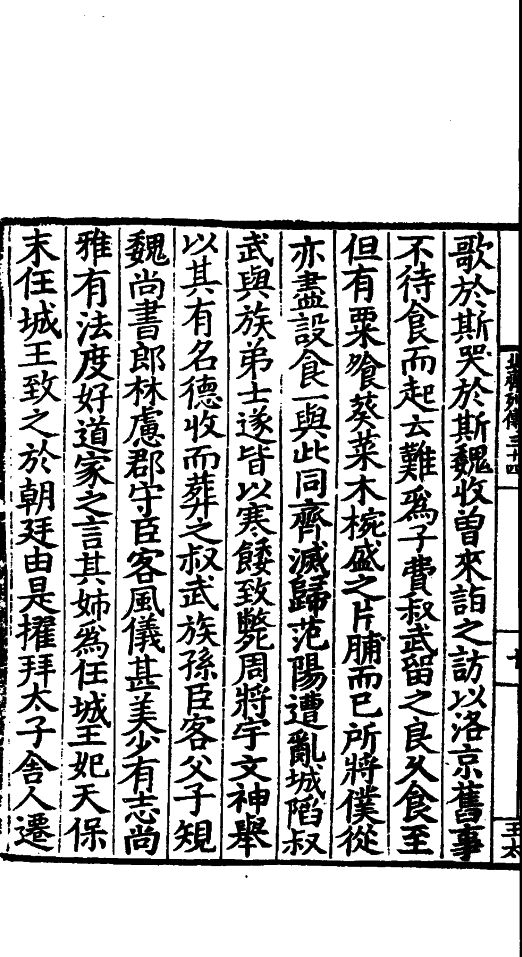 歌於斯哭於斯魏收曽來詣之訪以洛京舊事
不待食而起云難爲子費叔武留之良久食至
但有粟飱葵菜木椀盛之片脯而已所將僕從
亦盡設食一與此同齊滅歸范陽遭亂城陷叔
武與族弟士遂皆以寒餒致斃周將宇文神舉
以其有名德收而葬之叔武族孫臣客父子規
魏尚書郎林慮郡守臣客風儀甚美少有志尚
雅有法度好道家之言其姉爲任城王妃天保
末任城王致之於朝廷由是擢拜太子舍人遷